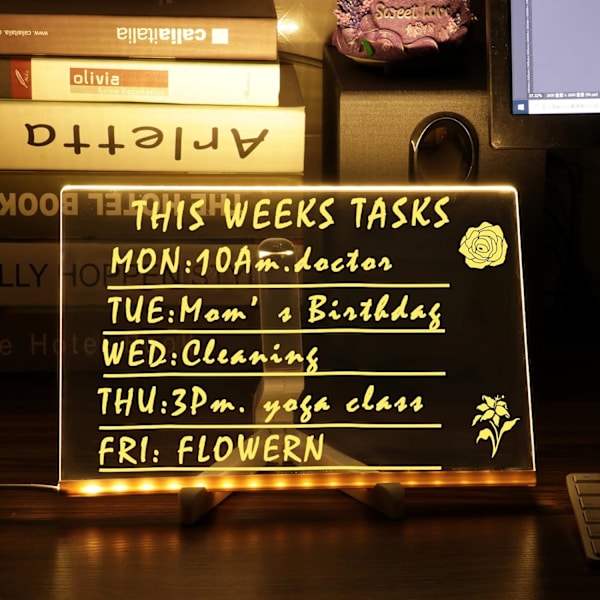 www.callaitalia.
callaitalia
olivia
Arletta
THE HOTEL BOOK
LLY HOPPEN STYLE
e Hotel
Sweet Love
THIS WEEKS TASKS
MON:10Am.doctor
TUE:Mom's Birthdag
WED:Cleaning
THU:3Pm. yoga class
FRI: FLOWERN